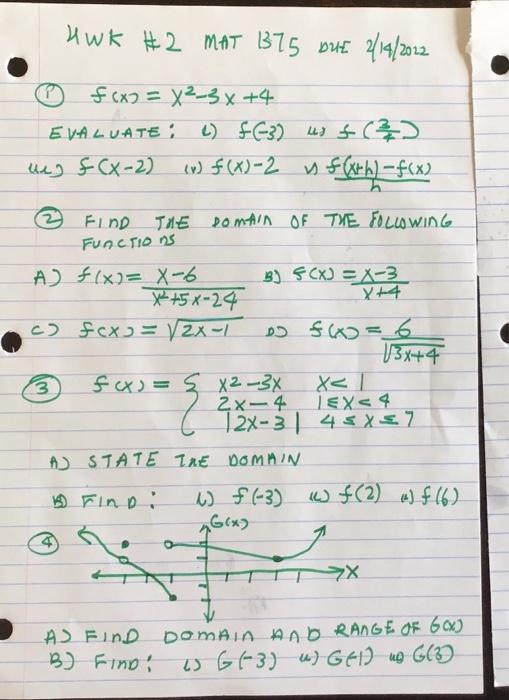 HWK #2 MAT 1375 DUE 2/14/2022
① f(x) = x²-3x+4
EVALUATE: i) f(-3) ii)
iii) f(x-2) iv) f(x)-2 v) f(x+h)-f(x)
h
② FIND THE DOMAIN OF THE FOLLOWING
FUNCTIONS
A) f(x) = x-6 B) f(x) = x-3
x²+5x-24 x+4
C) f(x) = √2x-1 D) f(x) = 6
√3x+4
③ f(x) = { x2-3x x<1
2x-4 1≤x<4
|2x-3| 4≤x≤7
A) STATE THE DOMAIN
B) FIND: i) f(-3) ii) f(2) iii) f(6)
④ G(x)
x
A) FIND DOMAIN AND RANGE OF G(x)
B) FIND: i) G(-3) ii) G(-1) iii) G(3)